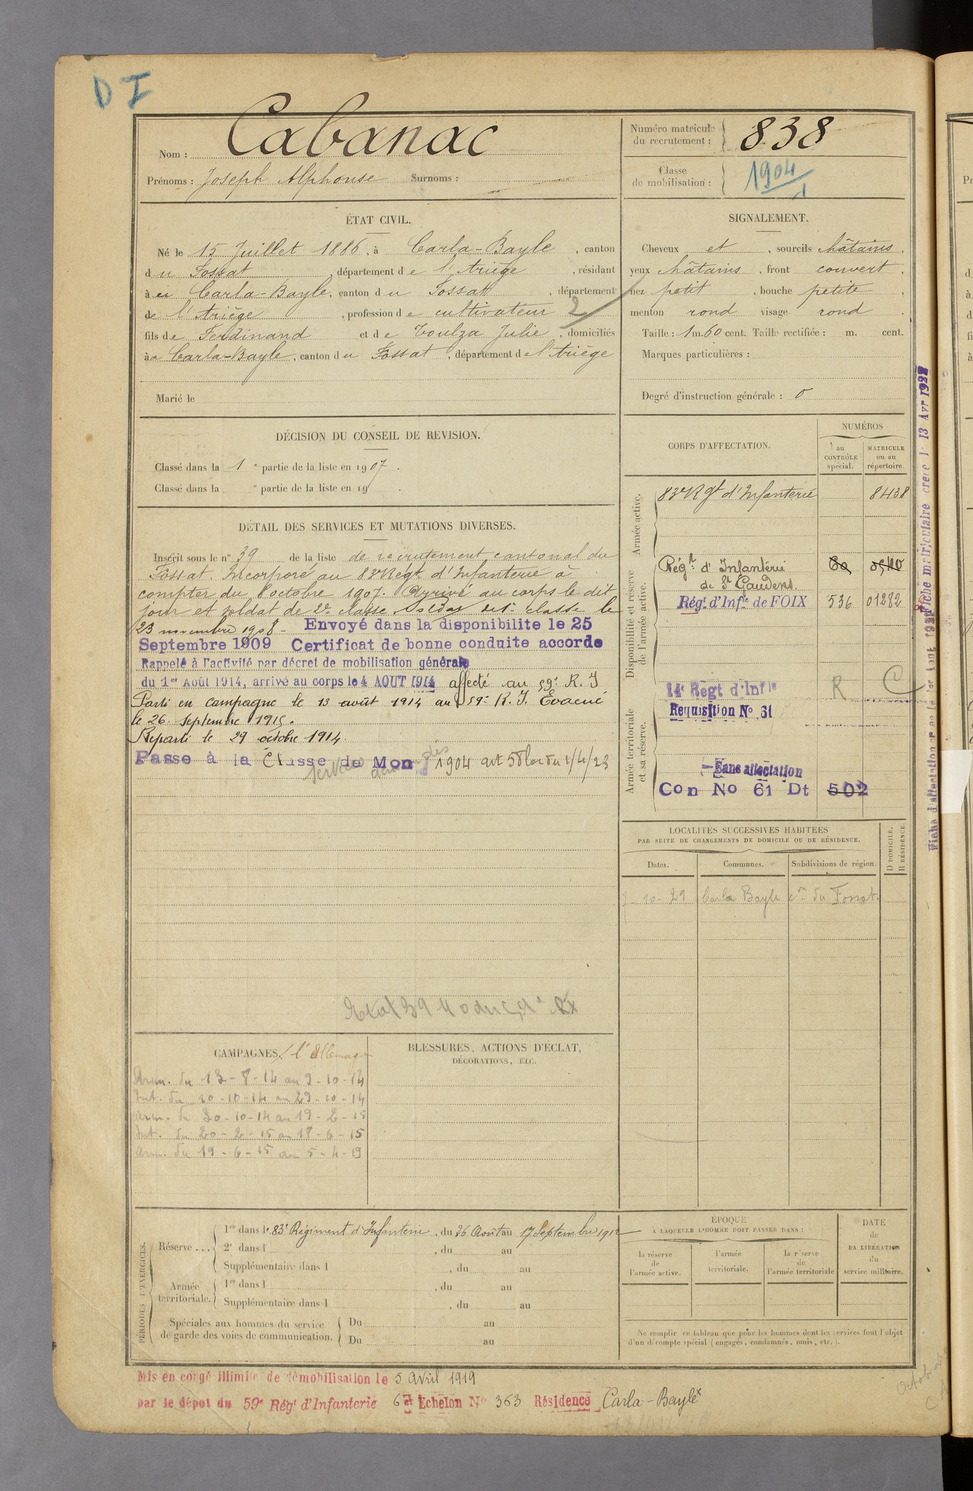 D I
Nom : Cabanac
Prénoms : Joseph Alphonse Surnoms :
Numéro matricule du recrutement : 838
Classe de mobilisation : 1904
ÉTAT CIVIL.
Né le 15 Juillet 1886, à Carla-Bayle, canton
du Fossat, département de l'Ariège, résidant
à Carla-Bayle, canton du Fossat, département
de l'Ariège, profession de cultivateur 2
fils de Ferdinand et de Toulza Julie, domiciliés
à Carla-Bayle, canton du Fossat, département de l'Ariège
Marié le
SIGNALEMENT.
Cheveux et, sourcils châtains,
yeux châtains, front couvert,
nez petit, bouche petite,
menton rond visage rond.
Taille : 1 m. 60 cent. Taille rectifiée : m. cent.
Marques particulières :
Degré d'instruction générale : 0
DÉCISION DU CONSEIL DE REVISION.
Classé dans la 1 e partie de la liste en 1907.
Classé dans la e partie de la liste en 19 .
DÉTAIL DES SERVICES ET MUTATIONS DIVERSES.
Inscrit sous le n° 39 de la liste de recrutement cantonal du
Fossat. Incorporé au 83e Régt. d'Infanterie à
compter du 8 octobre 1907. Arrivé au corps le dit
jour et soldat de 2e classe. Soldat de 1e classe le
23 novembre 1908.- Envoyé dans la disponibilité le 25
Septembre 1909 Certificat de bonne conduite accordé
Rappelé à l'activité par décret de mobilisation générale
du 1er Août 1914, arrivé au corps le 4 AOUT 1914 affecté au 59e R. I
Parti en campagne le 13 août 1914 au 59e R. I. Evacué
le 26 Septembre 1915.
Reparti le 29 octobre 1914.
Passé à la Classe de Mon 1904 art 58 loi du 1/4/23
CORPS D'AFFECTATION.
NUMÉROS
au CONTRÔLE spécial.
MATRICULE ou au répertoire.
Armée active.
83e Rgt d'Infanterie 8438
Disponibilité et réserve de l'armée active.
Régt d'Infanterie
de St Gaudens.
Régt. d'Infie de FOIX 536 01282
Armée territoriale et sa réserve.
14e Régt d'Infie R C
Requisition No. 61
Sans affectation
Con No 61 Dt 502
Fiche matriculaire créée le 13 Avr 1927
LOCALITÉS SUCCESSIVES HABITÉES
PAR SUITE DE CHANGEMENTS DE DOMICILE OU DE RÉSIDENCE.
Dates. Communes. Subdivisions de région. D DOMICILE. R RÉSIDENCE.
10-29 Carla Bayle con du Fossat
CAMPAGNES
BLESSURES, ACTIONS D'ÉCLAT,
DÉCORATIONS, ETC.
Arm. du 13-8-14 au 9-10-14
Int. du 10-10-14 au 29-10-14
Arm. du 30-10-14 au 19-2-15
Int. du 20-2-15 au 18-6-15
Arm. du 19-6-15 au 5-4-19
PÉRIODES D'EXERCICES.
Réserve...
1re dans le 83e Régiment d'Infanterie, du 26 Août au 17 Septembre 1912
2e dans l , du au
Supplémentaire dans l , du au
Armée territoriale.
1re dans l , du au
Supplémentaire dans l , du au
Spéciales aux hommes du service
de garde des voies de communication.
Du au
Du au
ÉPOQUE
À LAQUELLE L'HOMME DOIT PASSER DANS :
la réserve de l'armée active.
l'armée territoriale.
la réserve de l'armée territoriale
DATE de LA LIBÉRATION du service militaire.
Ne remplir ce tableau que pour les hommes dont les services font l'objet
d'un décompte spécial (engagés, condamnés, omis, etc.).
Mis en congé illimité de démobilisation le 5 avril 1919
par le dépôt du 59e Régt d'Infanterie 6e Echelon No 363 Résidence Carla-Bayle